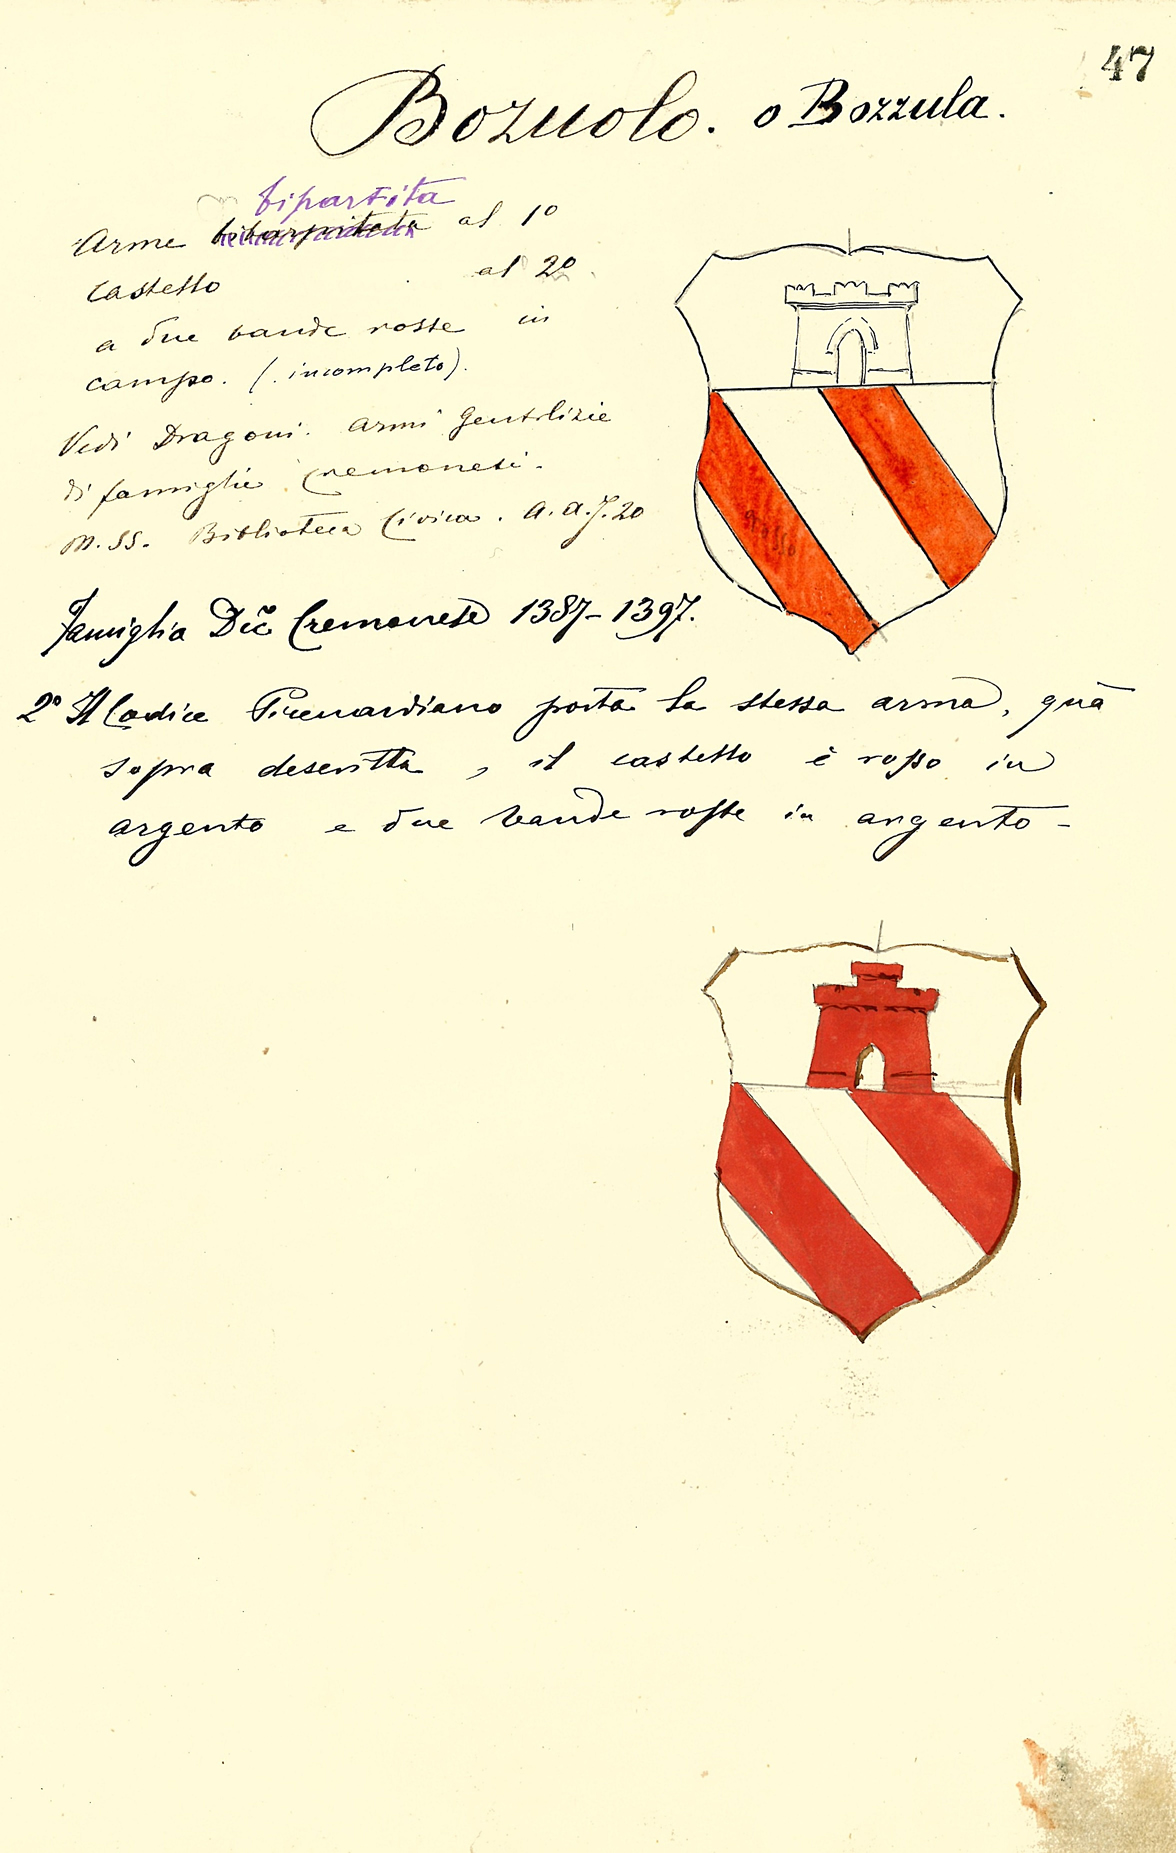 47
Bozuolo. o Bozzula.
bipartita
Arme al 1º
castello al 2º
a due bande rosse in
campo. (. incompleto).
Vedi Dragoni. Armi Gentilizie
di famiglie Cremonesi.
M.SS. Biblioteca Civica. A.a.J.20
rosso
Famiglia Dec̃ Cremonese 1387-1397.
2º Il Codice Picenardiano porta la stessa arma, quà
sopra descritta, il castello è rosso in
argento e due bande rosse in argento-